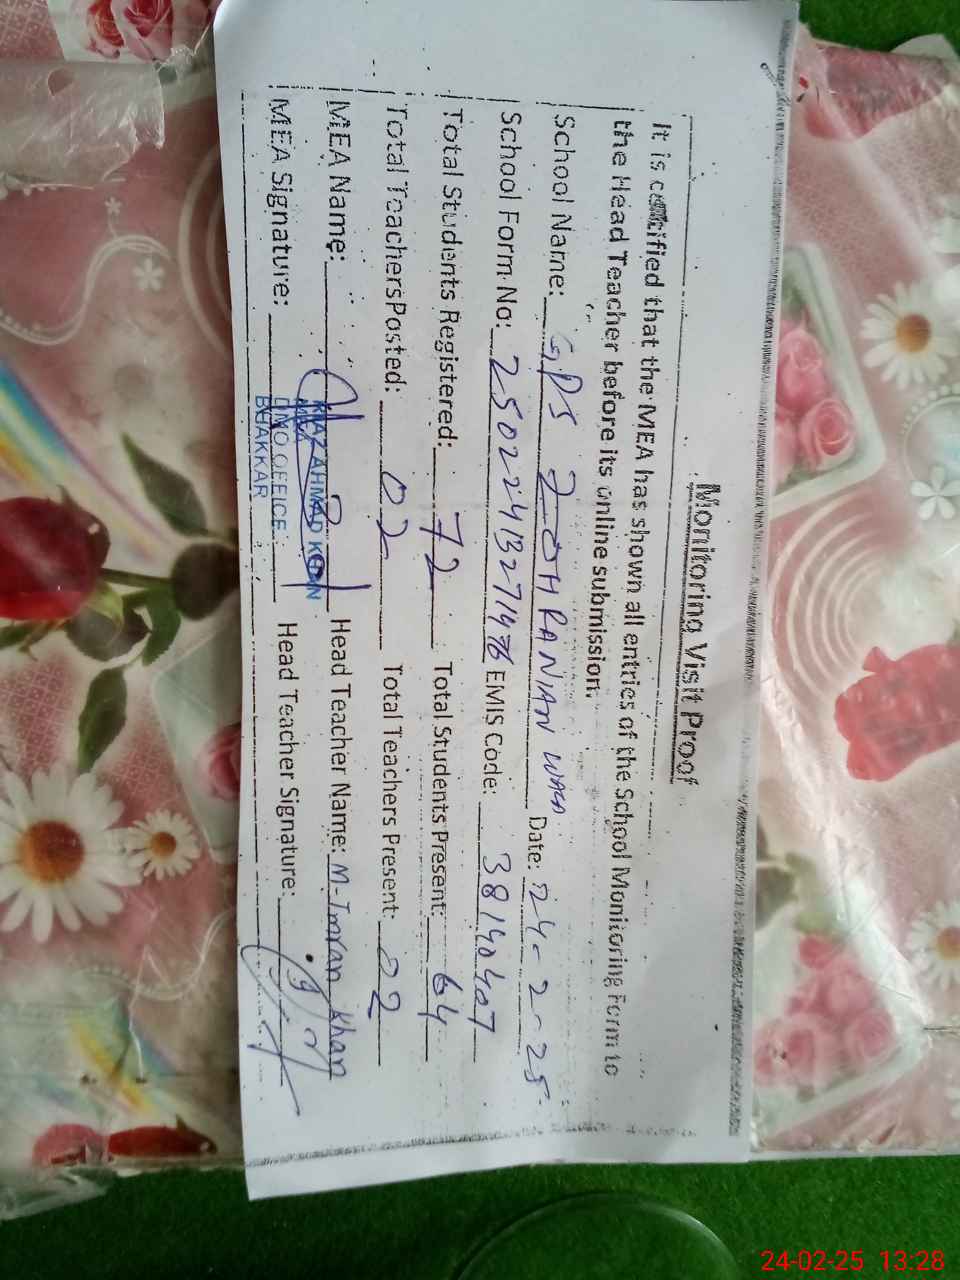 Monitoring Visit Proof
It is certified that the MEA has shown all entries of the School Monitoring Form to
the Head Teacher before its online submission.
School Name: GPS RANIAN WALA Date: 24-2-25
School Form No: EMIS Code: 38140407
Total Students Registered: 72 Total Students Present: 64
Total Teachers Posted: 02 Total Teachers Present: 02
MEA Name: Head Teacher Name: M-Imran Khan
AHMAD KHAN
MEA
DMO OFFICE
BHAKKAR
MEA Signature: Head Teacher Signature:
24-02-25 13:28